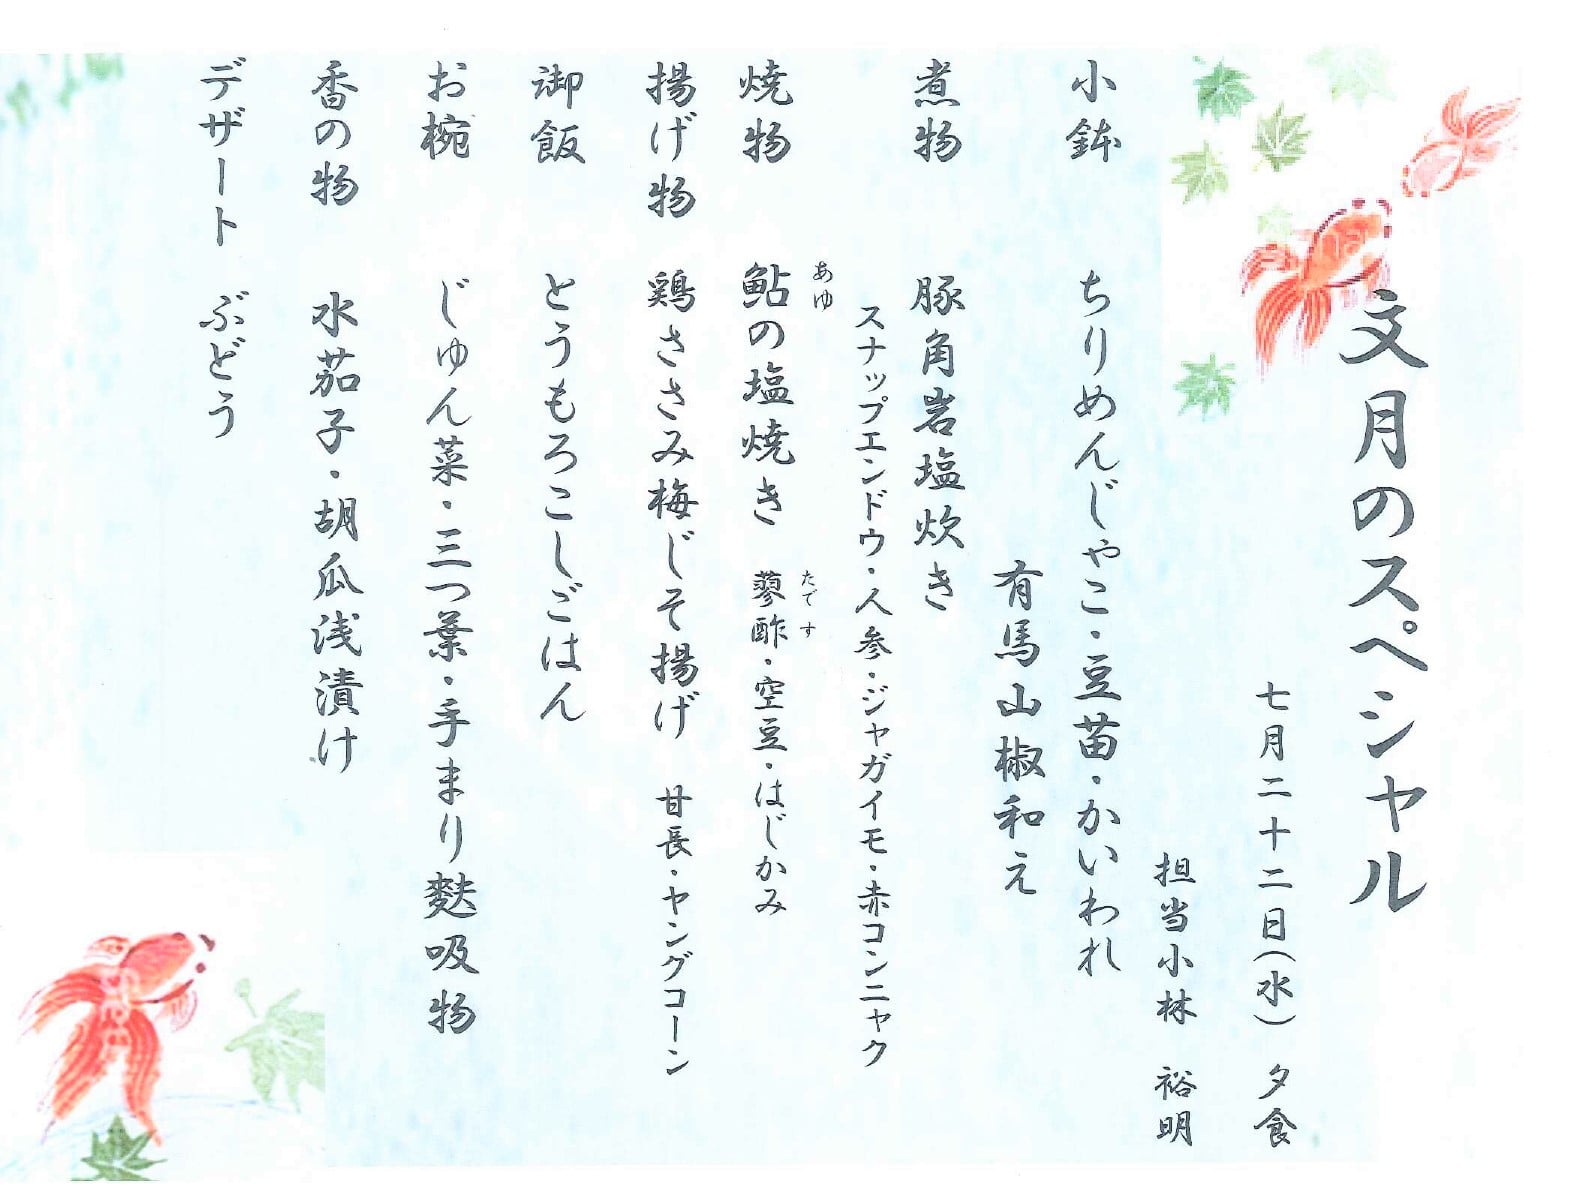 文月のスペシャル
七月二十二日(水) 夕食
担当小林 裕明
小鉢 ちりめんじゃこ・豆苗・かいわれ
有馬山椒和え
煮物 豚角岩塩炊き
スナップエンドウ・人参・ジャガイモ・赤コンニャク
あゆ たです
焼物 鮎の塩焼き 蓼酢・空豆・はじかみ
揚げ物 鶏ささみ梅じそ揚げ 甘長・ヤングコーン
御飯 とうもろこしごはん
お椀 じゅん菜・三つ葉・手まり麩吸物
香の物 水茄子・胡瓜浅漬け
デザート ぶどう